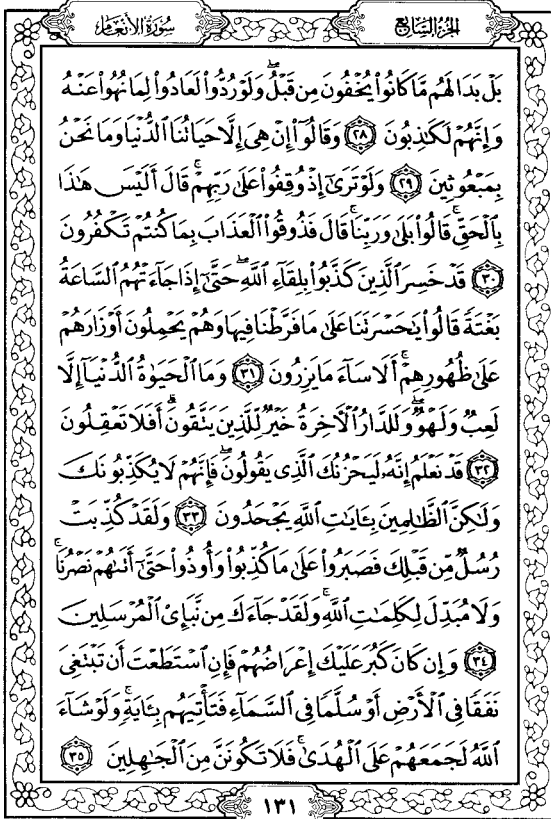 سُورَةُ الأَنْعَامِ
الجُزْءُ السَّابِعُ
بَلْ بَدَا لَهُم مَّا كَانُوا۟ يُخْفُونَ مِن قَبْلُ ۖ وَلَوْ رُدُّوا۟ لَعَادُوا۟ لِمَا نُهُوا۟ عَنْهُ
وَإِنَّهُمْ لَكَـٰذِبُونَ ٢٨ وَقَالُوٓا۟ إِنْ هِىَ إِلَّا حَيَاتُنَا ٱلدُّنْيَا وَمَا نَحْنُ
بِمَبْعُوثِينَ ٢٩ وَلَوْ تَرَىٰٓ إِذْ وُقِفُوا۟ عَلَىٰ رَبِّهِمْ ۚ قَالَ أَلَيْسَ هَـٰذَا
بِٱلْحَقِّ ۚ قَالُوا۟ بَلَىٰ وَرَبِّنَا ۚ قَالَ فَذُوقُوا۟ ٱلْعَذَابَ بِمَا كُنتُمْ تَكْفُرُونَ
٣٠ قَدْ خَسِرَ ٱلَّذِينَ كَذَّبُوا۟ بِلِقَآءِ ٱللَّهِ ۖ حَتَّىٰٓ إِذَا جَآءَتْهُمُ ٱلسَّاعَةُ
بَغْتَةً قَالُوا۟ يَـٰحَسْرَتَنَا عَلَىٰ مَا فَرَّطْنَا فِيهَا وَهُمْ يَحْمِلُونَ أَوْزَارَهُمْ
عَلَىٰ ظُهُورِهِمْ ۚ أَلَا سَآءَ مَا يَزِرُونَ ٣١ وَمَا ٱلْحَيَوٰةُ ٱلدُّنْيَآ إِلَّا
لَعِبٌ وَلَهْوٌ ۖ وَلَلدَّارُ ٱلْـَٔاخِرَةُ خَيْرٌ لِّلَّذِينَ يَتَّقُونَ ۗ أَفَلَا تَعْقِلُونَ
٣٢ قَدْ نَعْلَمُ إِنَّهُۥ لَيَحْزُنُكَ ٱلَّذِى يَقُولُونَ ۖ فَإِنَّهُمْ لَا يُكَذِّبُونَكَ
وَلَـٰكِنَّ ٱلظَّـٰلِمِينَ بِـَٔايَـٰتِ ٱللَّهِ يَجْحَدُونَ ٣٣ وَلَقَدْ كُذِّبَتْ
رُسُلٌ مِّن قَبْلِكَ فَصَبَرُوا۟ عَلَىٰ مَا كُذِّبُوا۟ وَأُوذُوا۟ حَتَّىٰٓ أَتَىٰهُمْ نَصْرُنَا ۚ
وَلَا مُبَدِّلَ لِكَلِمَـٰتِ ٱللَّهِ ۚ وَلَقَدْ جَآءَكَ مِن نَّبَإِى۟ ٱلْمُرْسَلِينَ
٣٤ وَإِن كَانَ كَبُرَ عَلَيْكَ إِعْرَاضُهُمْ فَإِنِ ٱسْتَطَعْتَ أَن تَبْتَغِىَ
نَفَقًا فِى ٱلْأَرْضِ أَوْ سُلَّمًا فِى ٱلسَّمَآءِ فَتَأْتِيَهُم بِـَٔايَةٍ ۚ وَلَوْ شَآءَ
ٱللَّهُ لَجَمَعَهُمْ عَلَى ٱلْهُدَىٰ ۚ فَلَا تَكُونَنَّ مِنَ ٱلْجَـٰهِلِينَ ٣٥
١٣١